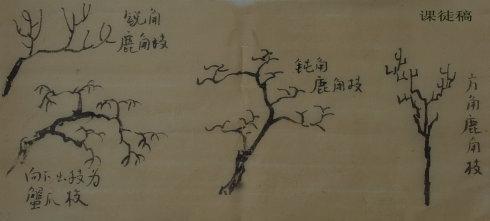 课徒稿
锐角
鹿角枝
向下出枝为
蟹爪枝
钝角
鹿角枝
方角鹿角枝